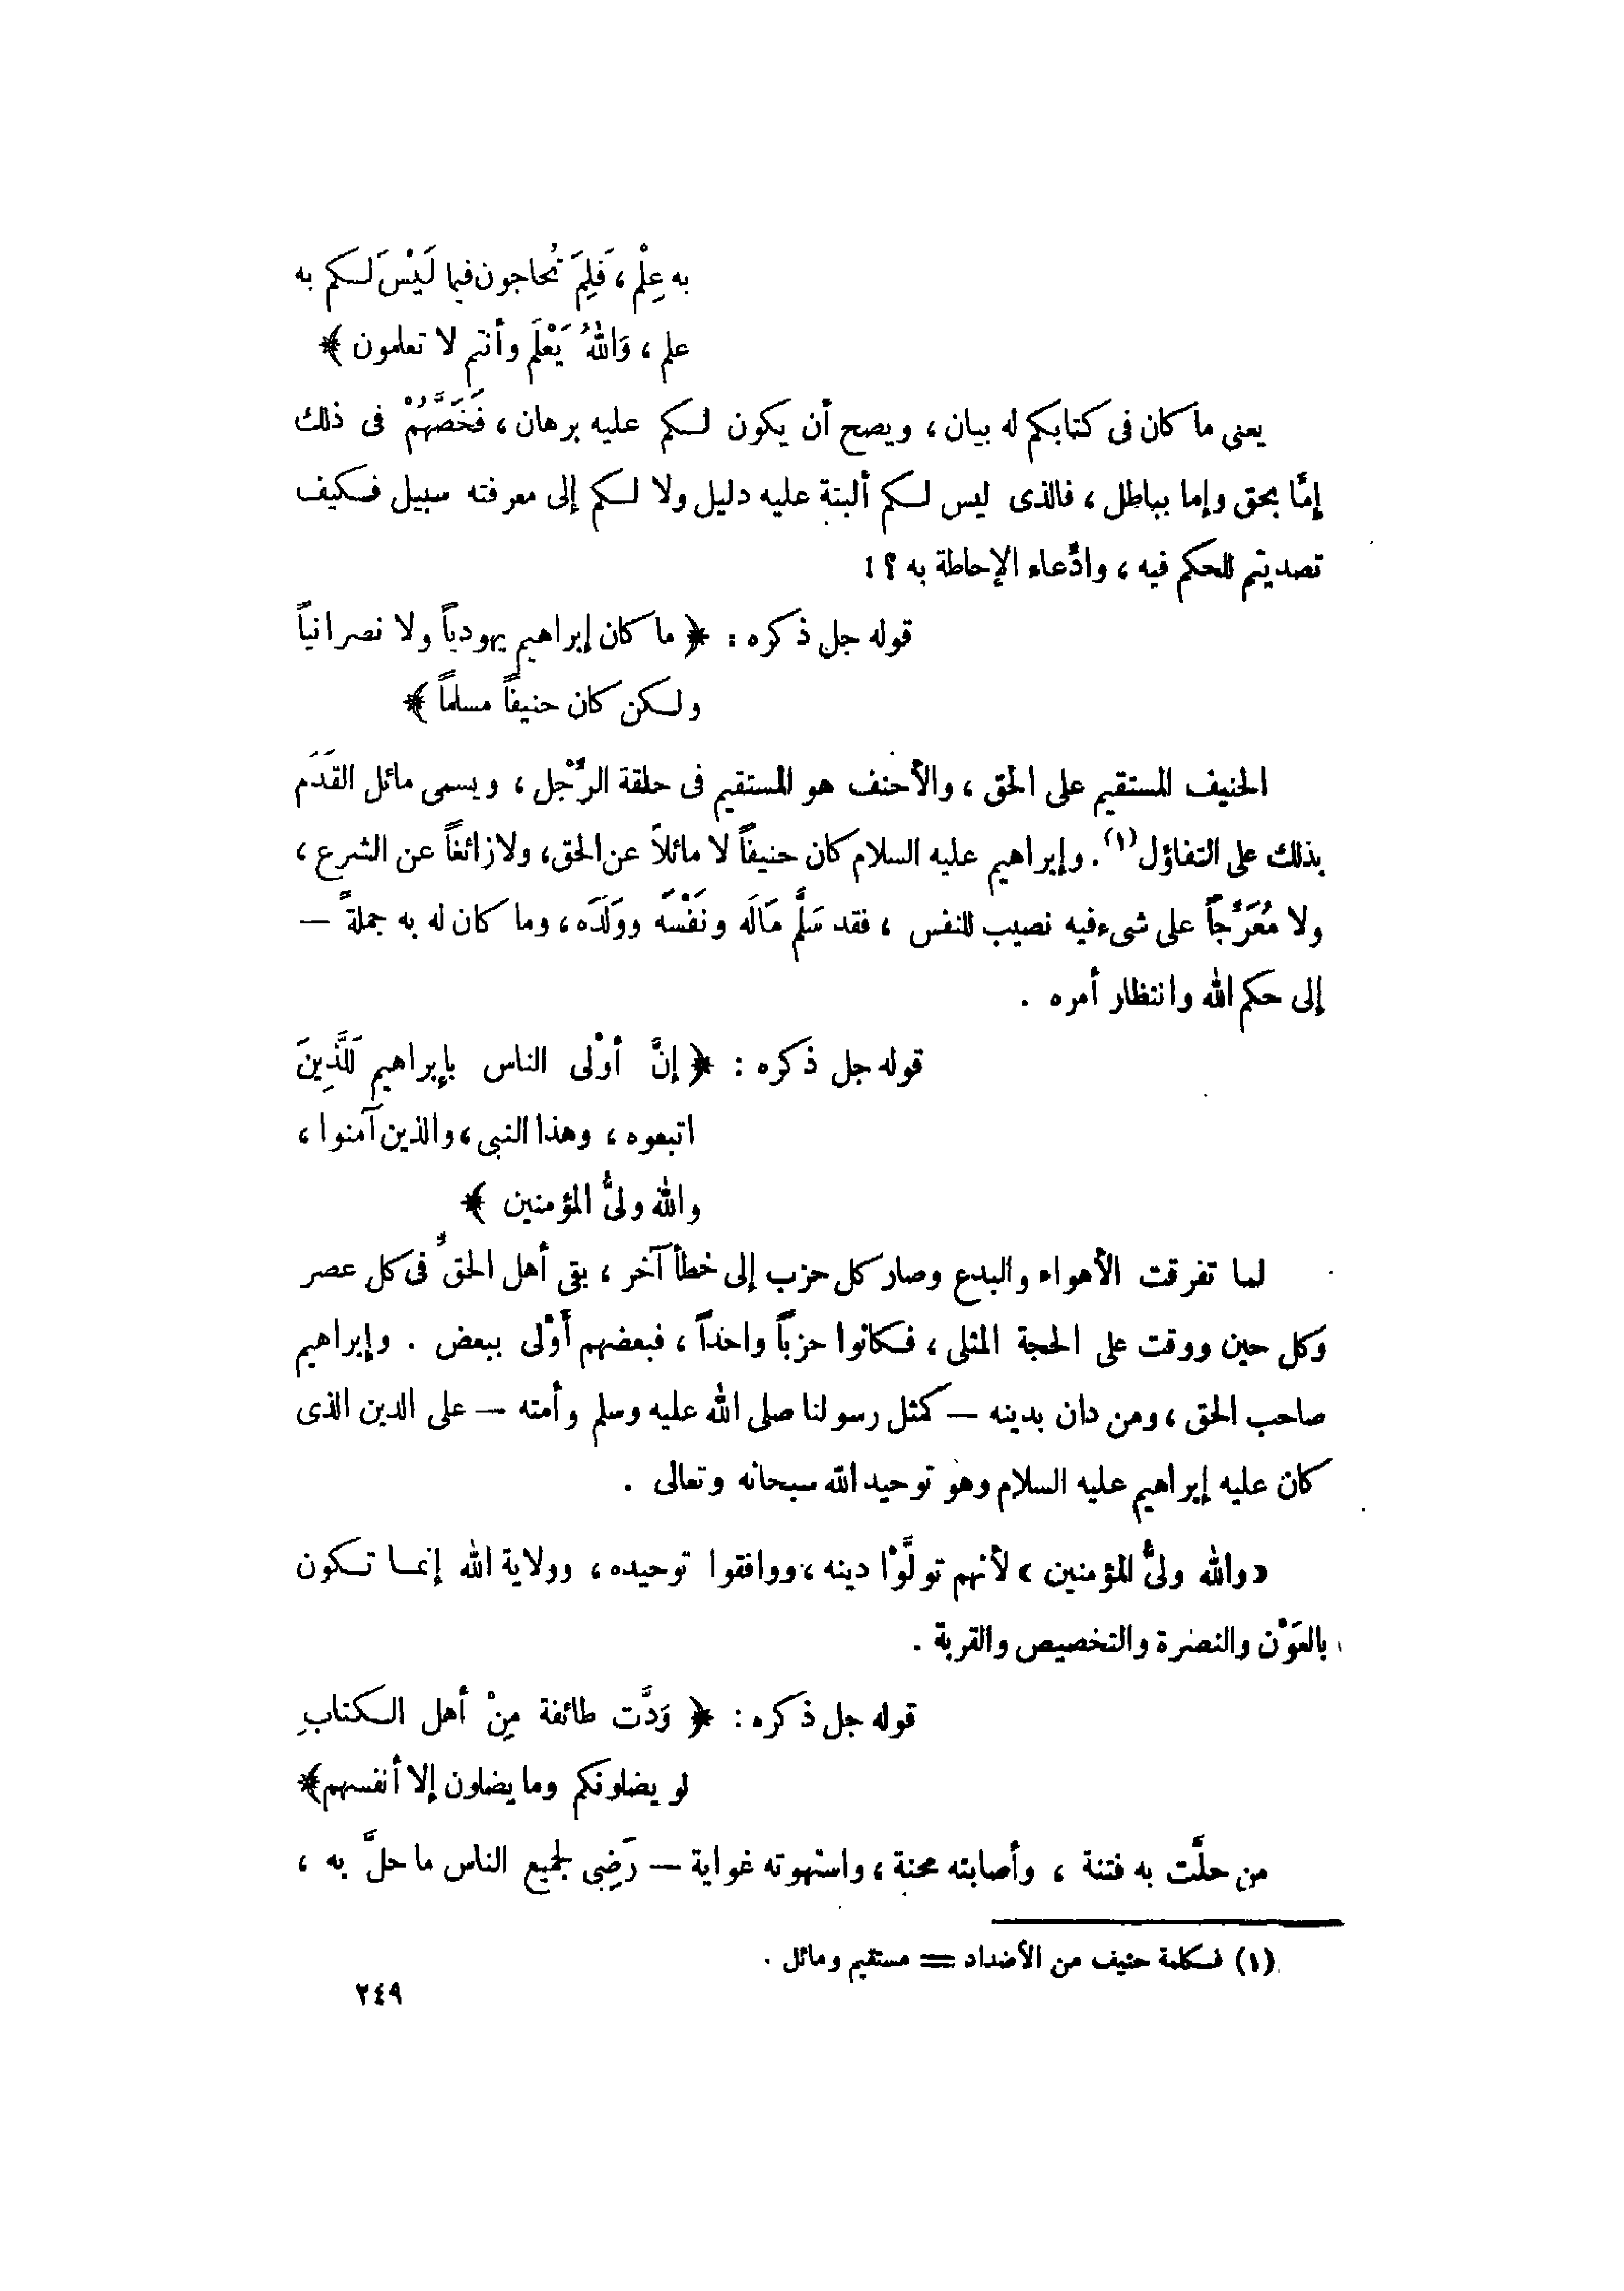 به عِلْم ، فَلِمَ تُحاجون فيما لَيْسَ لكم به
علم ، وَاللهُ يَعْلَم وأنتم لا تعلمون ﴾
يعنى ما كان فى كتابكم له بيان ، ويصح أن يكون لكم عليه برهان ، فَخَصَّهُمْ فى ذلك
إمَّا بحق وإما بباطل ، فالذى ليس لكم ألبتة عليه دليل ولا لكم إلى معرفته سبيل فكيف
تصديتم للحكم فيه ، وادِّعاء الإحاطة به ؟ !
قوله جل ذكره : ﴿ ما كان إبراهيم يهودياً ولا نصرانياً
ولكن كان حنيفاً مسلماً ﴾
الحنيف المستقيم على الحق ، والأحنف هو المستقيم فى حلقة الرِّجْل ، ويسمى مائل القَدَم
بذلك على التفاؤل (١) . وإبراهيم عليه السلام كان حنيفاً لا مائلاً عن الحق ، ولا زائغاً عن الشرع ،
ولا مُعَرِّجاً على شىء فيه نصيب للنفس ، فقد سَلَّم مَالَه ونَفْسَه ووَلَدَه ، وما كان له به جملةً —
إلى حكم الله وانتظار أمره .
قوله جل ذكره : ﴿ إنَّ أوْلى الناس بإبراهيم لَلَّذِينَ
اتبعوه ، وهذا النبى ، والذين آمنوا ،
والله ولىُّ المؤمنين ﴾
لما تفرقت الأهواء والبدع وصار كل حزب إلى خطأ آخر ، بقى أهل الحقِّ فى كل عصر
وكل حين ووقت على الحجة المثلى ، فكانوا حزباً واحداً ، فبعضهم أوْلى ببعض . وإبراهيم
صاحب الحق ، ومن دان بدينه — كمثل رسولنا صلى الله عليه وسلم وأمته — على الدين الذى
كان عليه إبراهيم عليه السلام وهو توحيد الله سبحانه وتعالى .
« والله ولىُّ المؤمنين » لأنهم تولَّوْا دينه ، ووافقوا توحيده ، وولاية الله إنما تكون
بالعَوْن والنصرة والتخصيص والقربة .
قوله جل ذكره : ﴿ وَدَّت طائفة مِنْ أهل الكتابِ
لو يضلونكم وما يضلون إلا أنفسهم ﴾
من حلَّت به فتنة ، وأصابته محنة ، واستهوته غواية — رَضِى لجميع الناس ما حلَّ به ،
(١) فكلمة حنيف من الأضداد = مستقيم ومائل .
٢٤٩